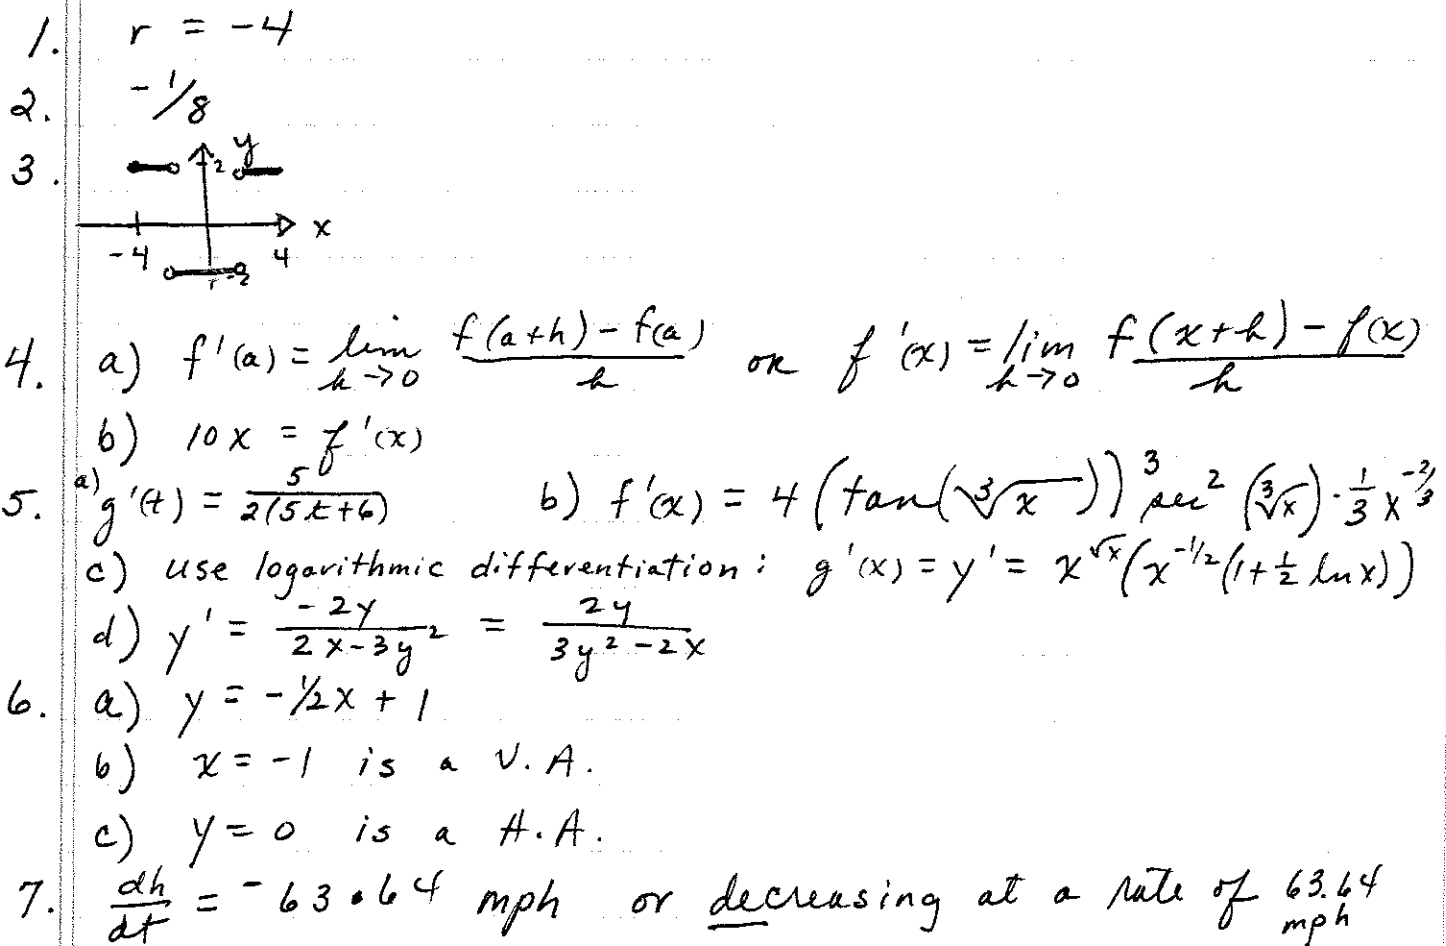 1. r = -4
2. -1/8
3. y
2
x
-4 4
-2
4. a) f'(a) = lim h→0 (f(a+h) - f(a))/h or f'(x) = lim h→0 (f(x+h) - f(x))/h
b) 10x = f'(x)
5. a) g'(t) = 5/(2(5t+6)) b) f'(x) = 4(tan(∛x))³ sec²(∛x) · 1/3 x^(-2/3)
c) use logarithmic differentiation: g'(x) = y' = x^√x (x^(-1/2) (1 + 1/2 ln x))
d) y' = -2y/(2x-3y²) = 2y/(3y²-2x)
6. a) y = -1/2x + 1
b) x = -1 is a V.A.
c) y = 0 is a H.A.
7. dh/dt = -63.64 mph or decreasing at a rate of 63.64 mph